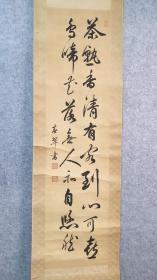 茶熟香清有客到門可喜
鳥啼花落無人亦自悠然